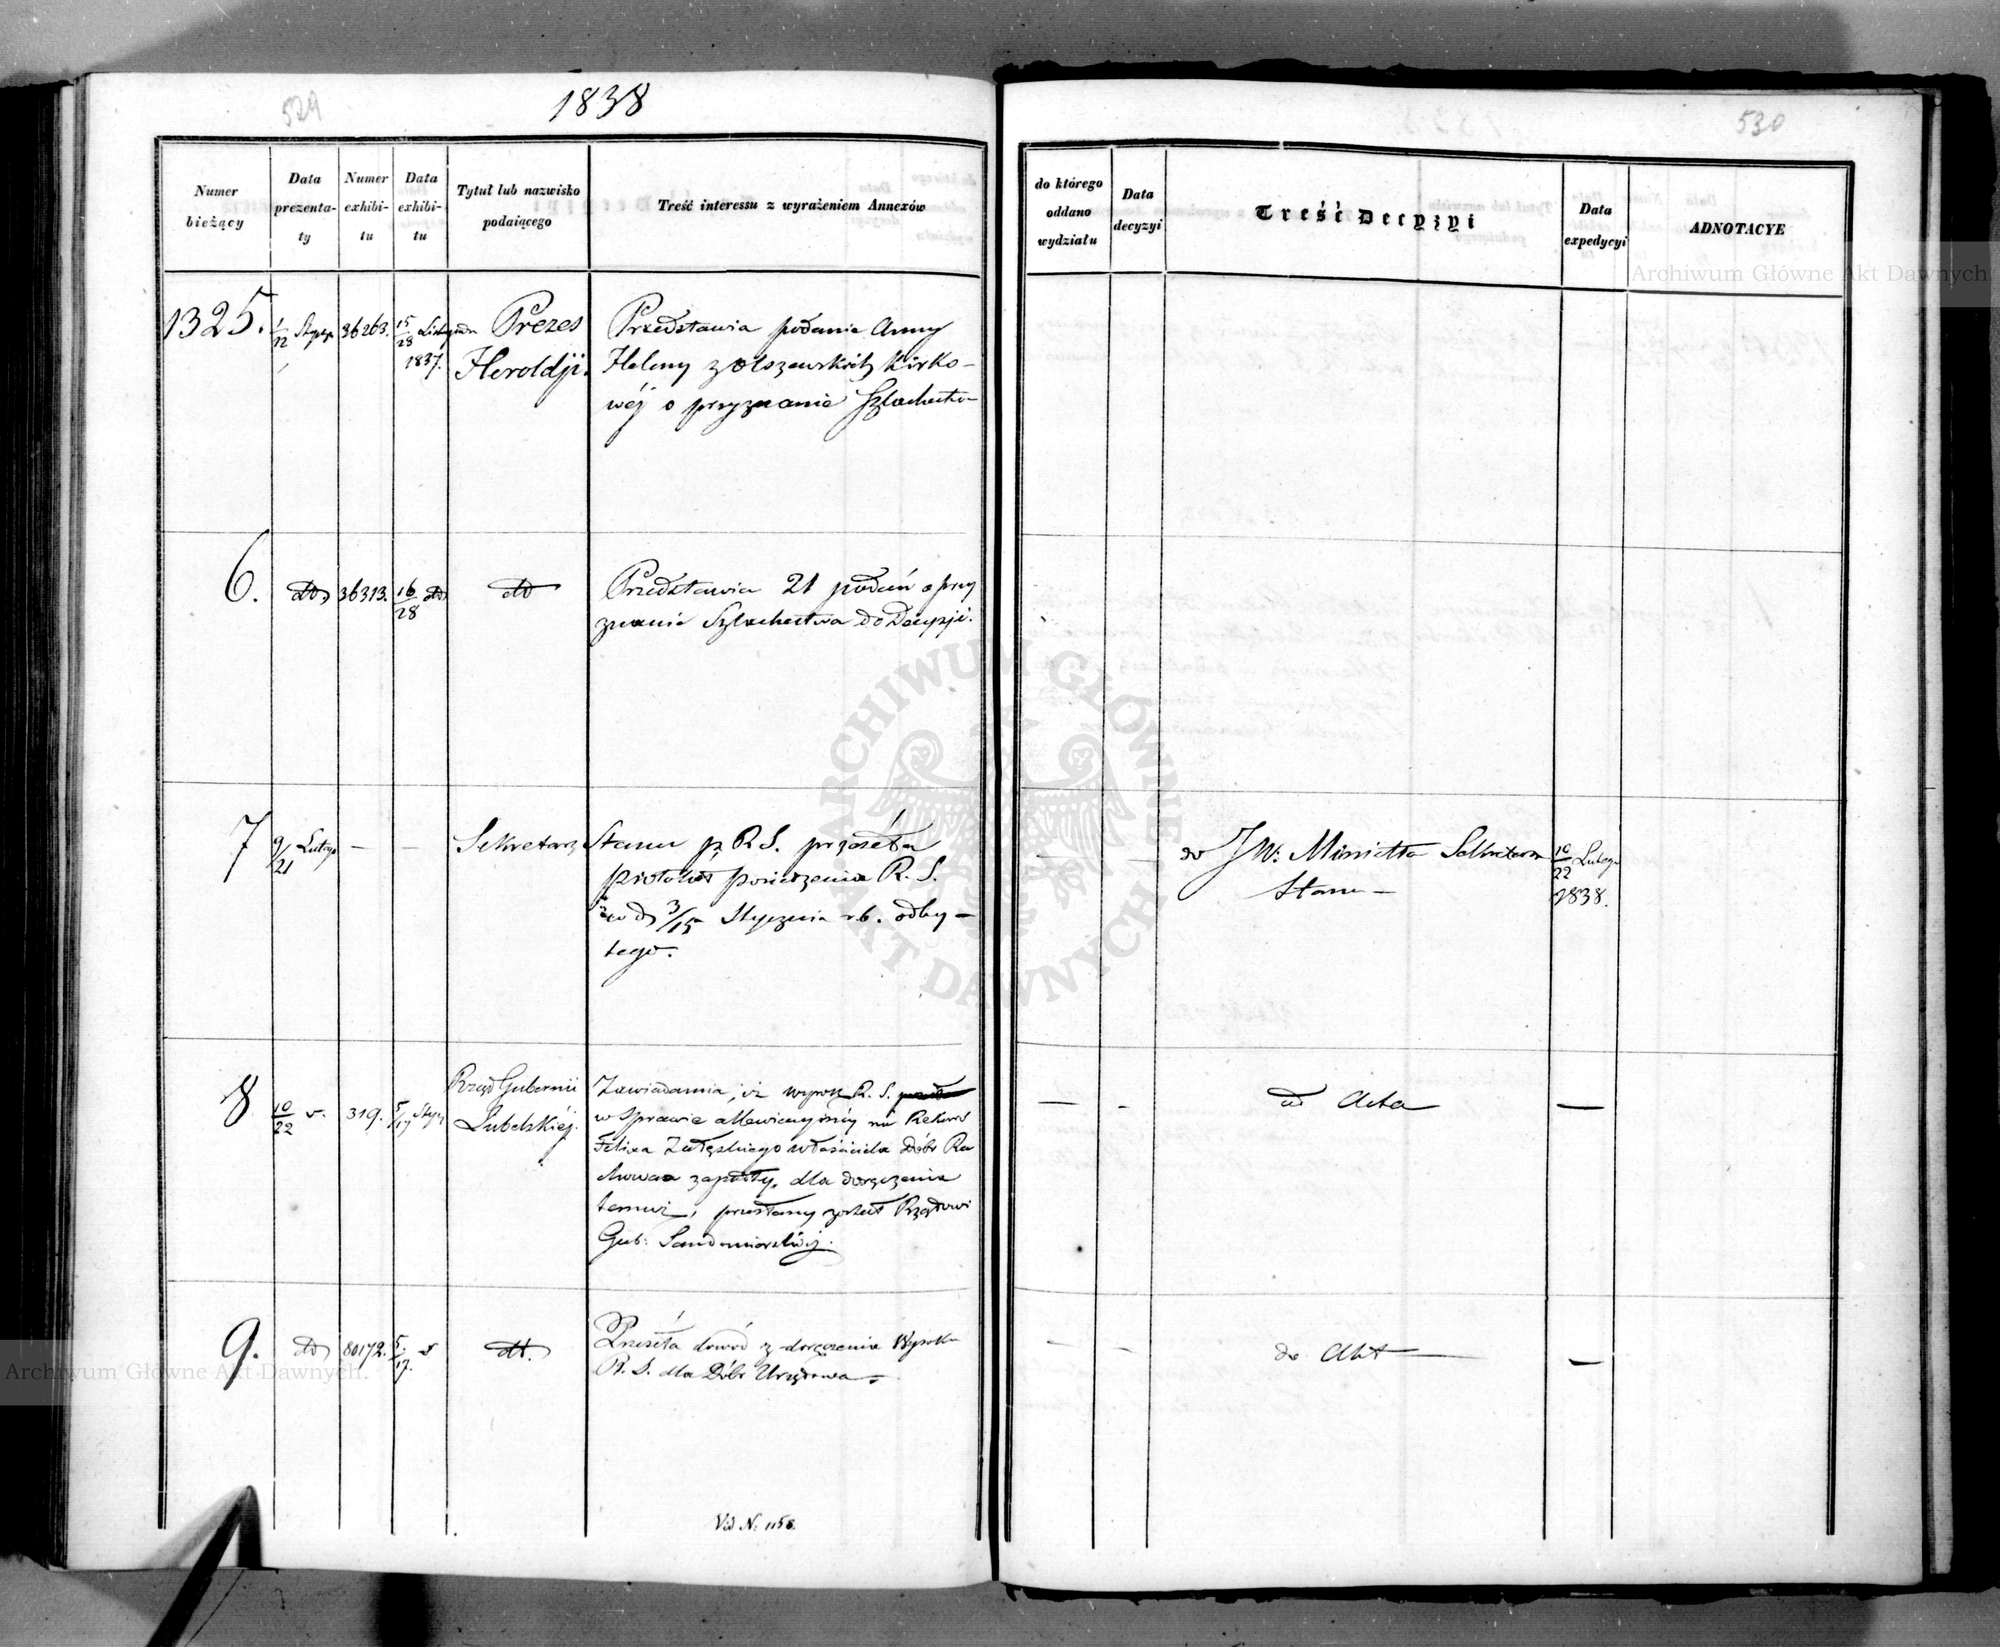 529
1838
Numer bieżący
Data prezenta-ty
Numer exhibi-tu
Data exhibi-tu
Tytuł lub nazwisko podaiącego
Treść interessu z wyrażeniem Annexów
1325.
1/12 Stycz
36263.
15/28 Listopada
1837.
Prezes
Heroldji.
Przedstawia podanie Anny
Heleny z Olszewskich Kirko-
wéj o przyznanie Szlachectw
6.
dto
36313.
16/28 dto
dto
Przedstawia 21 podań o przy
znanie Szlachectwa do Decyzji.
7
9/21 Lutego
—
—
Sekretarz Stanu p. R. S. przeséła
protokół posiedzenia R. S.
w d 3/15 Stycznia r. b. odby-
tego.
8
10/22
319.
5/17 Stycz
Rząd Gubernii
Lubelskiéj.
Zawiadamia, iż wyrok R. S.
w Sprawie na Rekurs
Felixa Załęskiego właściciela Dóbr Ra
chowa zapadły, dla doręczenia
temuż, przesłany został Rządowi
Gub: Sandomierskiéj.
9.
dto
80172.
5/17.
dt.
Przeséła dowód z doręczenia Wyroku
R. S. dla Dóbr Urzędowa
Vid N: 1158.
530
do którego oddano wydziału
Data decyzyi
Treść Decyzyi
Data expedycyi
ADNOTACYE
do JW: Ministra Sekretarza
Stanu —
10/22 Lutego
1838.
—
-
ad Acta
—
-
-
do Akt
—
Archiwum Główne Akt Dawnych
ARCHIWUM GŁÓWNE AKT DAWNYCH
Archiwum Główne Akt Dawnych.